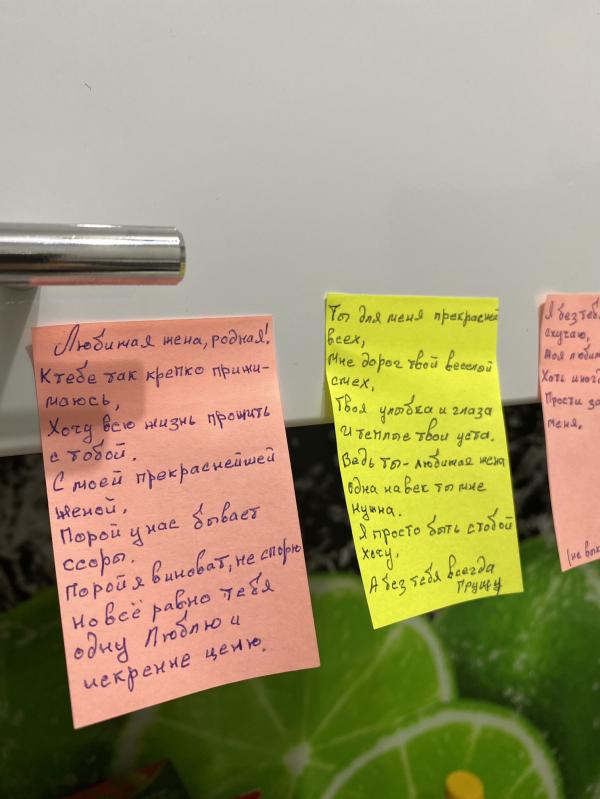 Любимая жена, родная!
К тебе так крепко прижи-
маюсь,
Хочу всю жизнь прожить
с тобой.
С моей прекраснейшей
женой.
Порой у нас бывает
ссоры.
Порой я виноват, не спорю
но всё равно тебя
одну Люблю и
искренне ценю.
Ты для меня прекрасней
всех,
Мне дорог твой веселой
смех,
Твоя улыбка и глаза
И теплые твои уста.
Ведь ты - любимая жена
одна на век ты мне
нужна.
Я просто быть с тобой
хочу,
А без тебя всегда
грущу
Я без
скучаю,
Моя
Хоть
Прости за
меня.
(не